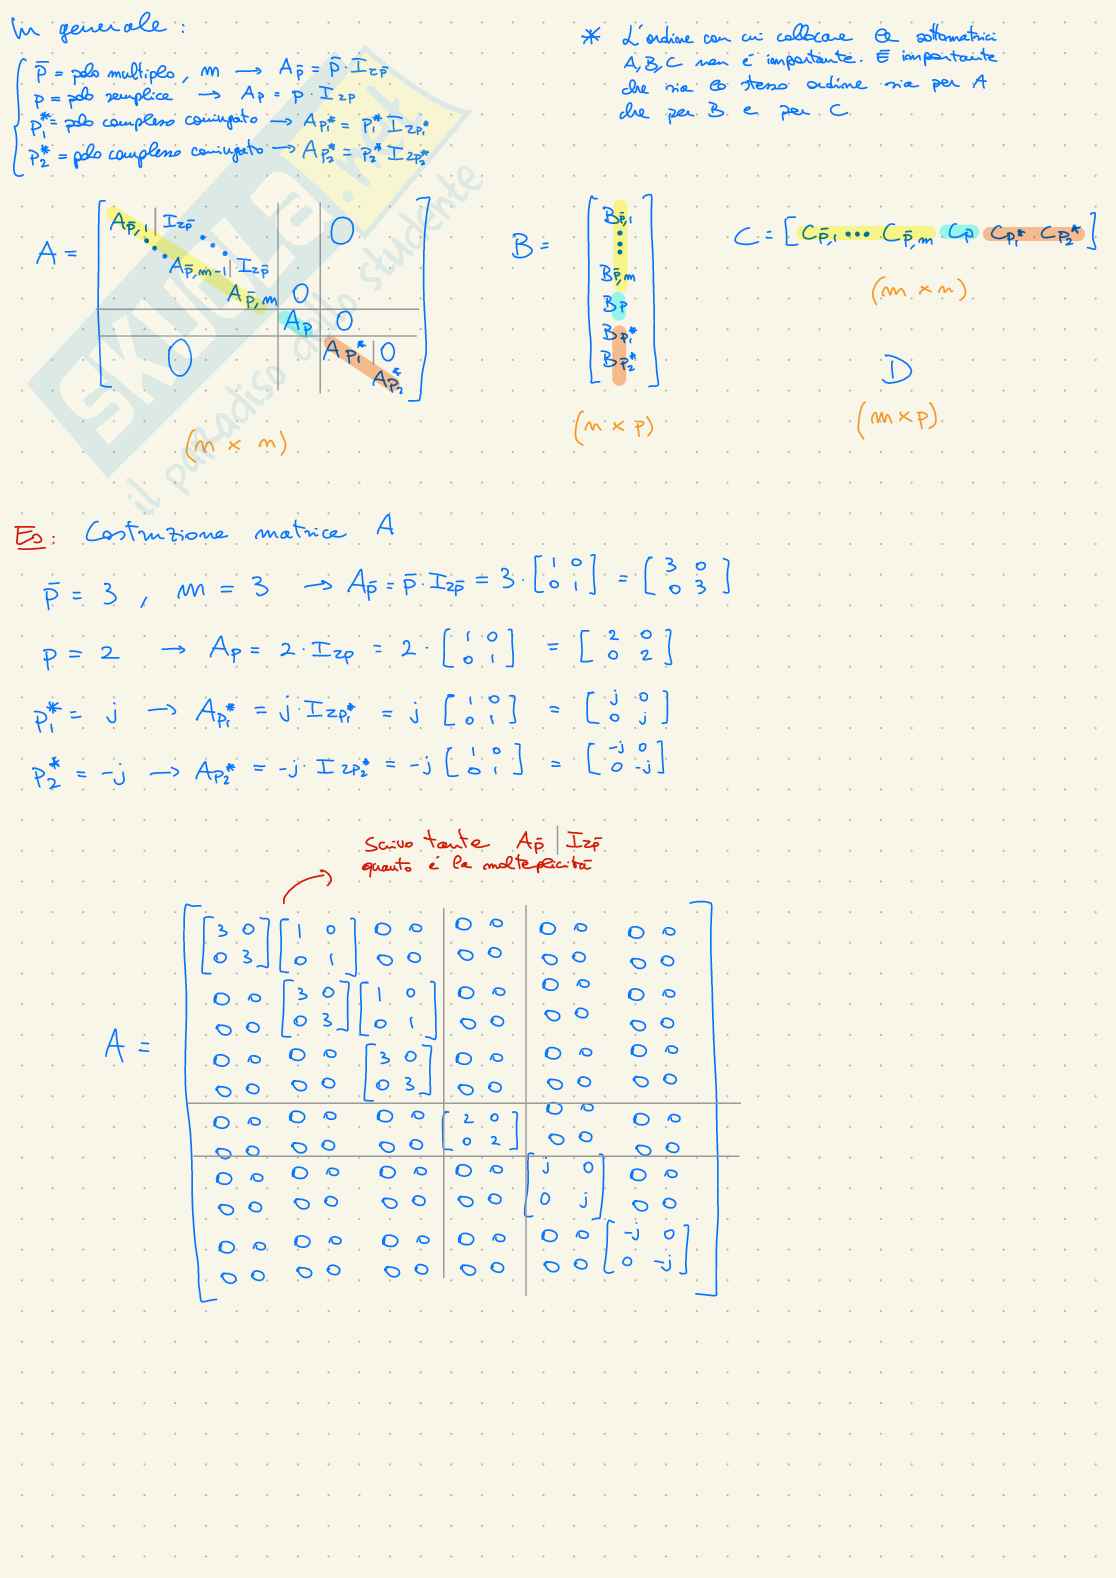 In generale :
p̄ = polo multiplo , m → A_p̄ = p̄ · I_zp̄
p = polo semplice → A_p = p · I_zp
p₁* = polo complesso coniugato → A_p₁* = p₁* I_zp₁*
p₂* = polo complesso coniugato → A_p₂* = p₂* I_zp₂*
* L'ordine con cui collocare le sottomatrici
A, B, C non è importante. È importante
che sia lo stesso ordine sia per A
che per B e per C
A = [ A_p̄,1 | I_zp̄ 0
A_p̄,m-1 | I_zp̄
A_p̄,m 0
A_p 0
0 A_p₁* | 0
A_p₂* ]
(n × n)
B = [ B_p̄,1
⋮
B_p̄,m
B_p
B_p₁*
B_p₂* ]
(n × p)
C = [ C_p̄,1 ... C_p̄,m C_p C_p₁* C_p₂* ]
(m × n)
D
(m × p)
Es: Costruzione matrice A
p̄ = 3 , m = 3 → A_p̄ = p̄ · I_zp̄ = 3 · [1 0; 0 1] = [3 0; 0 3]
p = 2 → A_p = 2 · I_zp = 2 · [1 0; 0 1] = [2 0; 0 2]
p₁* = j → A_p₁* = j · I_zp₁* = j [1 0; 0 1] = [j 0; 0 j]
p₂* = -j → A_p₂* = -j · I_zp₂* = -j [1 0; 0 1] = [-j 0; 0 -j]
Scrivo tante A_p̄ | I_zp̄
quanto è la molteplicità
A =
3 0 1 0 0 0 0 0 0 0 0 0
0 3 0 1 0 0 0 0 0 0 0 0
0 0 3 0 1 0 0 0 0 0 0 0
0 0 0 3 0 1 0 0 0 0 0 0
0 0 0 0 3 0 0 0 0 0 0 0
0 0 0 0 0 3 0 0 0 0 0 0
0 0 0 0 0 0 2 0 0 0 0 0
0 0 0 0 0 0 0 2 0 0 0 0
0 0 0 0 0 0 0 0 j 0 0 0
0 0 0 0 0 0 0 0 0 j 0 0
0 0 0 0 0 0 0 0 0 0 -j 0
0 0 0 0 0 0 0 0 0 0 0 -j
SKUOLA.net
il paradiso dello studente